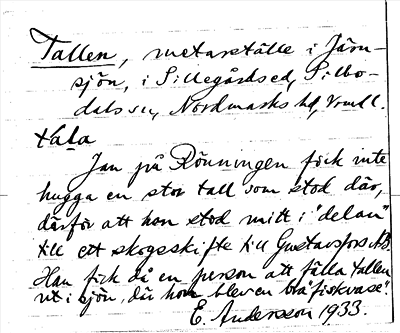 Tallen, metarställe i Järn-
sjön, i Sillegårdsed, Silbo-
dals sn, Nordmarks hd, Vrmll.
tala
Jan på Rönningen fick inte
hugga en stor tall som stod där,
därför att hon stod mitt i "delan"
till ett skogsskifte till Gustavsfors AB.
Han fick då en person att fälla tallen
ut i sjön, där hon blev en bra "fiskvase".
E. Andersson 1933.